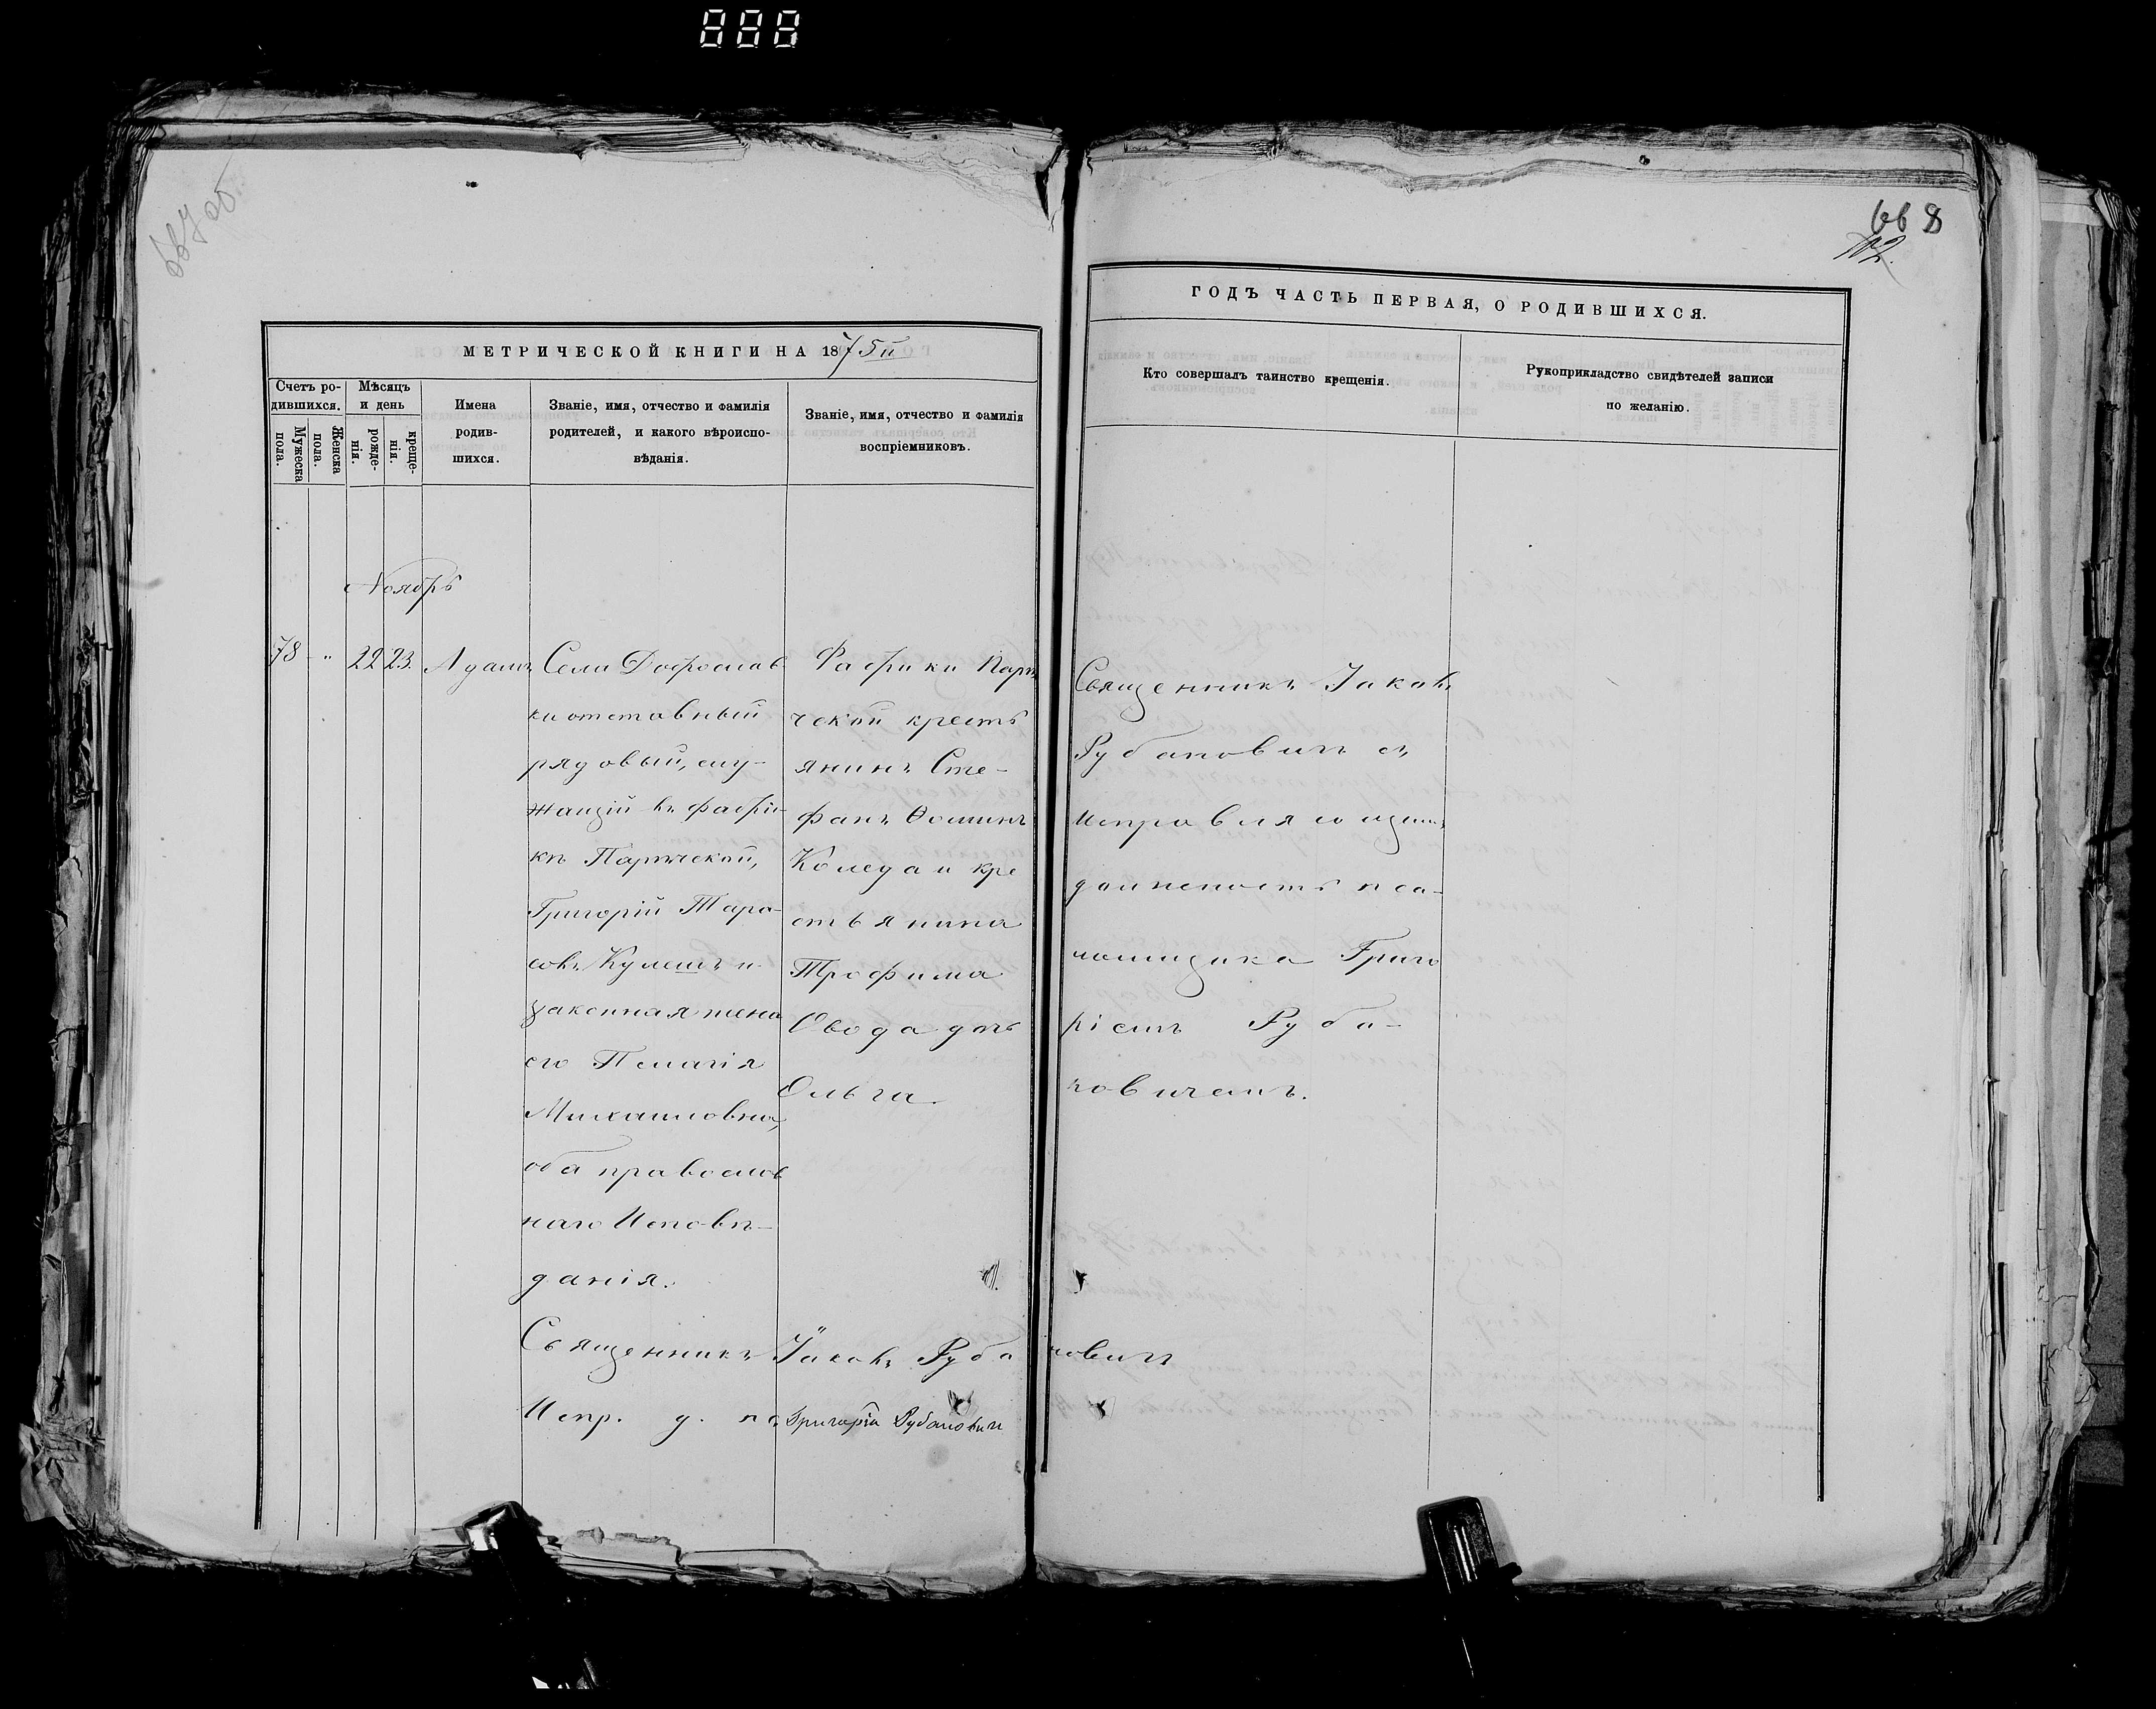 888
667 об.
668
102.
МЕТРИЧЕСКОЙ КНИГИ НА 1875й
ГОДЪ ЧАСТЬ ПЕРВАЯ, О РОДИВШИХСЯ.
Счетъ ро-
дившихся.
Мужеска
пола.
Женска
пола.
Мѣсяцъ
и день
рожде-
нія.
креще-
нія.
Имена
родив-
шихся.
Званіе, имя, отчество и фамилія
родителей, и какого вѣроиспо-
вѣданія.
Званіе, имя, отчество и фамилія
воспріемниковъ.
Кто совершалъ таинство крещенія.
Рукоприкладство свидѣтелей записи
по желанію.
Ноябрь
78 " 22 23. Адамъ
Села Доброслав
ки отставный
рядовый, слу-
жащій въ фабри-
кѣ Паричской,
Григорій Тара-
совъ Кулешъ и
законная жена
его Пелагія
Михаиловна,
оба православ
наго Исповѣ-
данія.
Фабрики Пари
чской кресть
янинъ Сте-
фанъ Ѳоминъ
Коледа и кре
стьянина
Трофима
Овода дочь
Ольга.
Священникъ Іаковъ
Рубановичъ съ
Исправляющимъ
должность пса-
ломщика Григо
ріемъ Руба-
новичемъ.
Священникъ Іаковъ Рубановичъ
Испр. д. пс. Григорій Рубановичъ